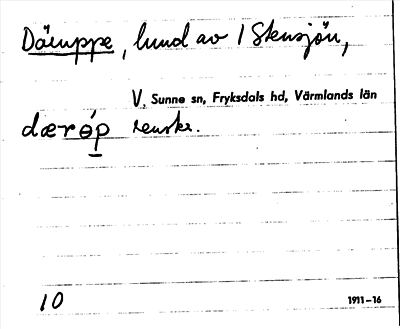 Däruppe, lund av 1 Stensjön,
V. Sunne sn, Fryksdals hd, Värmlands län
dærǿp
10
1911-16